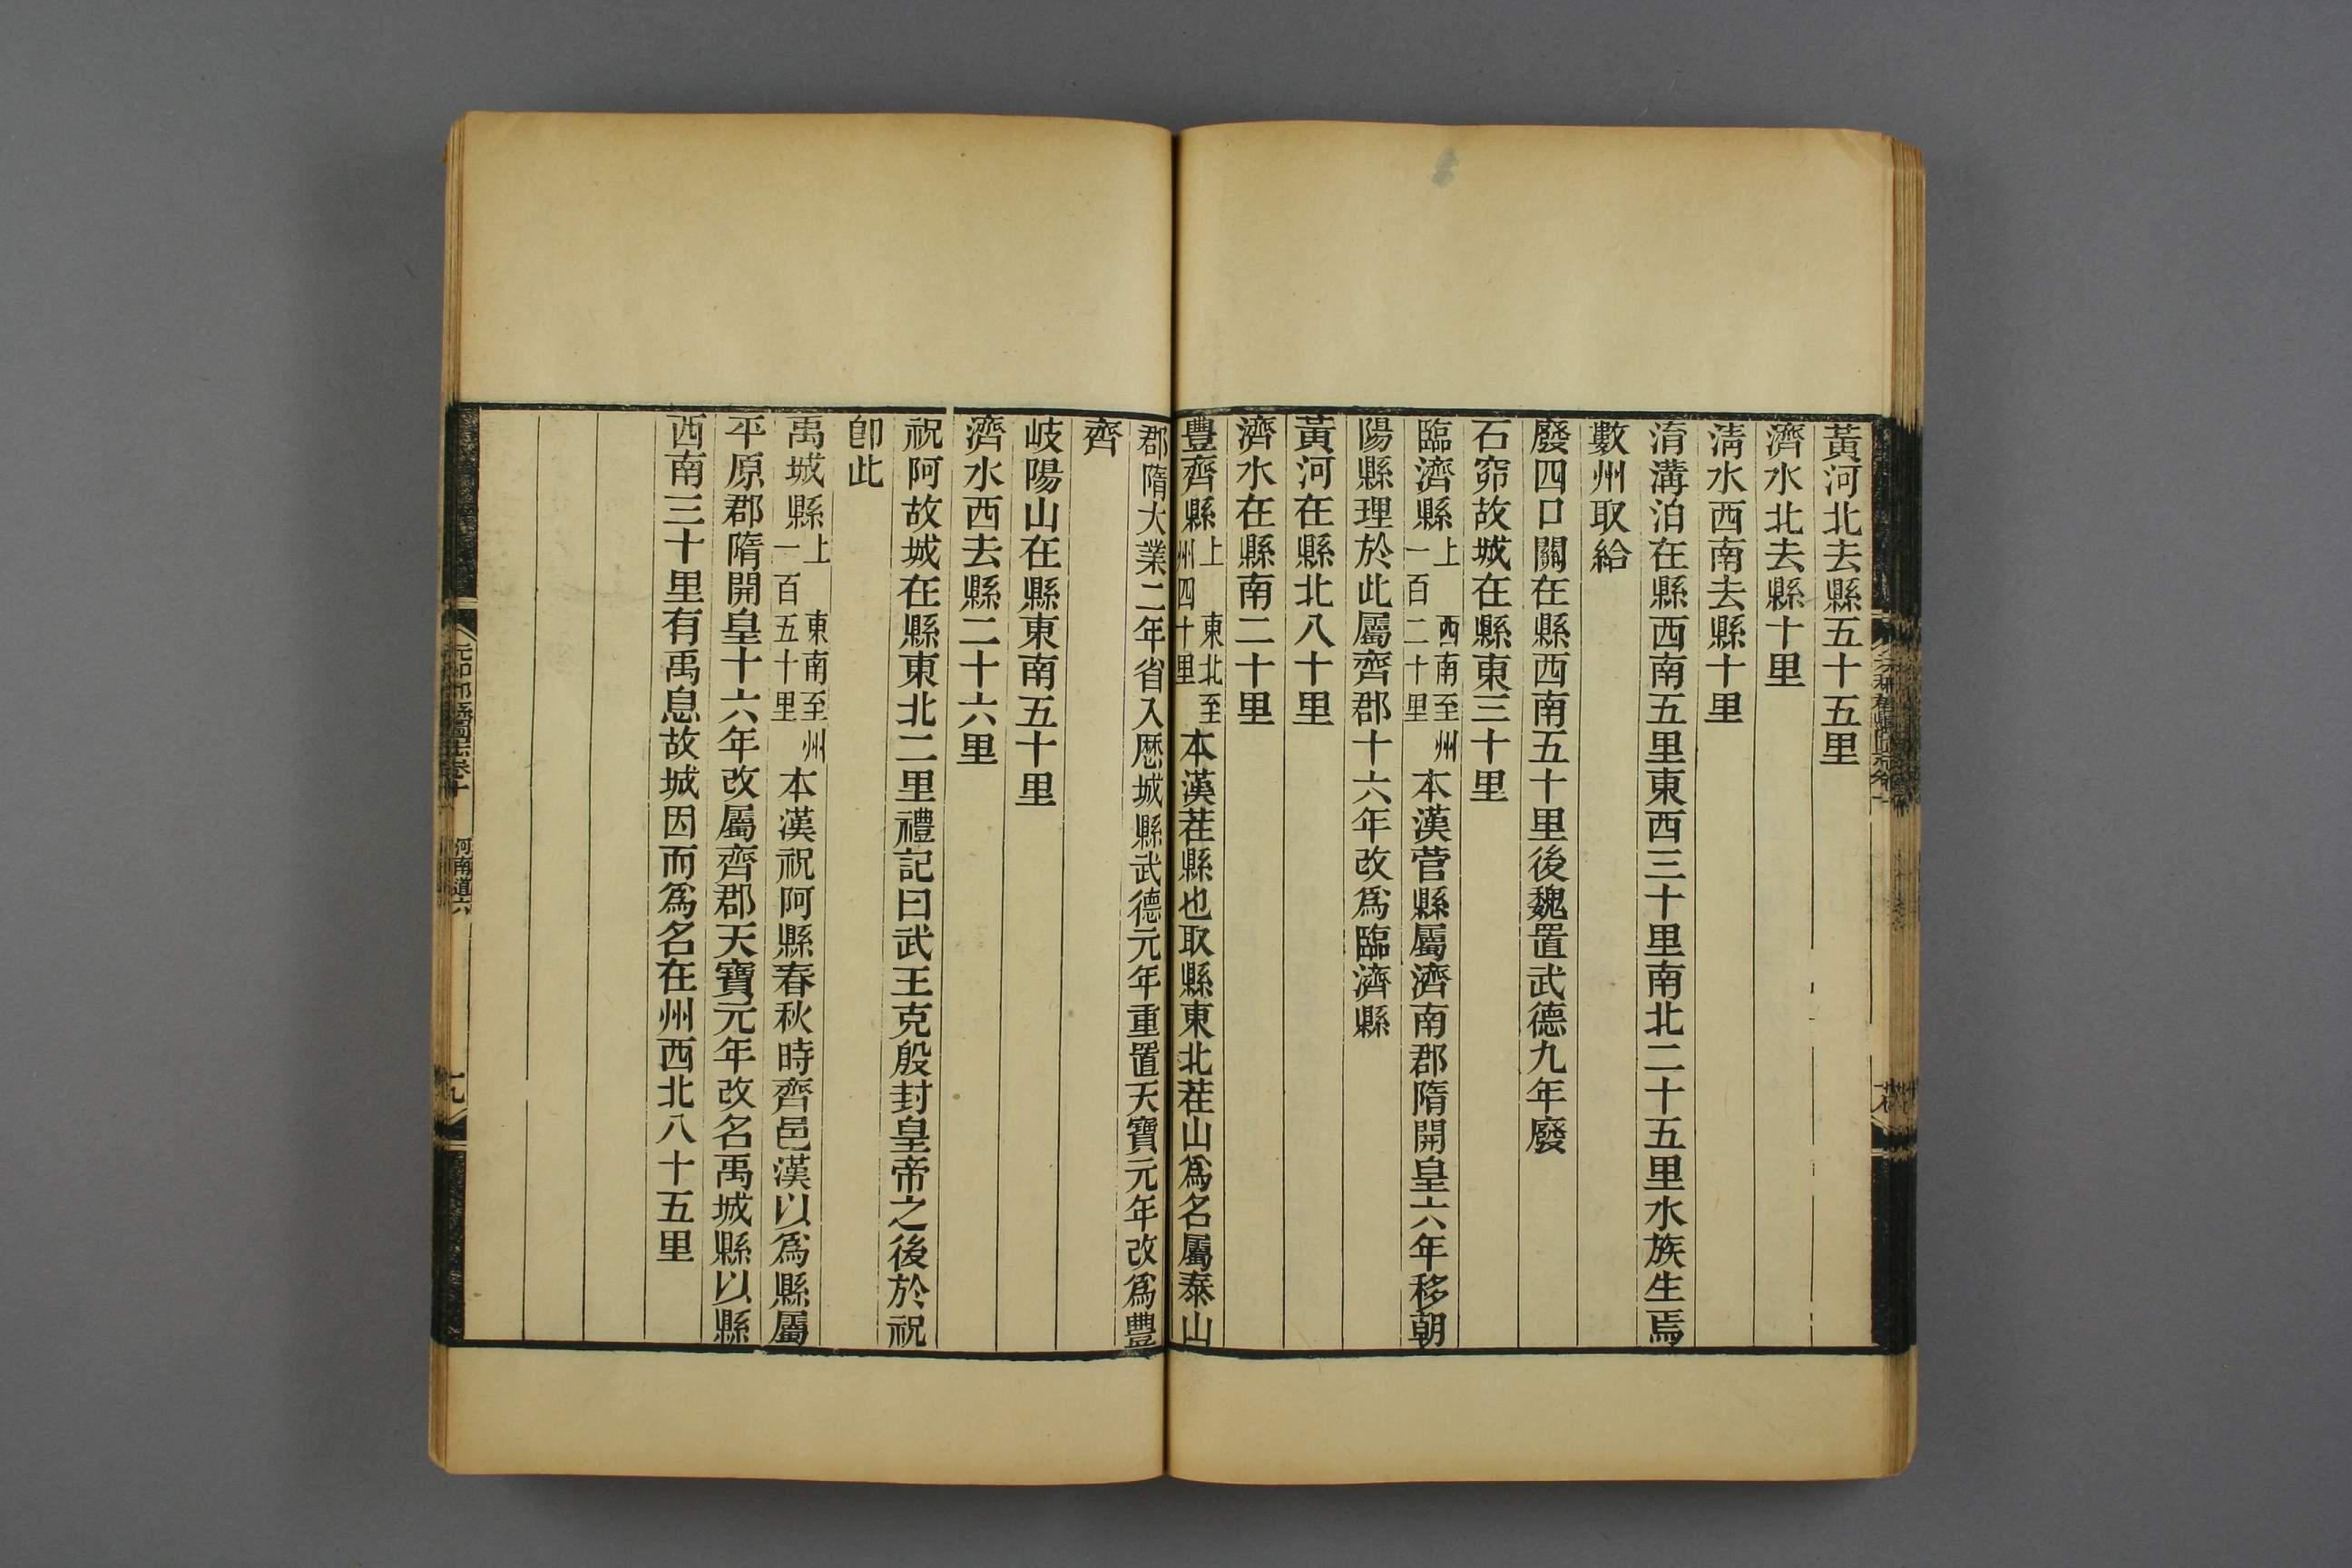 黃河北去縣五十五里
濟水北去縣十里
淸水西南去縣十里
淯溝泊在縣西南五里東西三十里南北二十五里水族生焉
數州取給
廢四口關在縣西南五十里後魏置武德九年廢
石窌故城在縣東三十里
臨濟縣上 西南至州一百二十里 本漢菅縣屬濟南郡隋開皇六年移朝
陽縣理於此屬齊郡十六年改爲臨濟縣
黃河在縣北八十里
濟水在縣南二十里
豐齊縣上 東北至州四十里 本漢茬縣也取縣東北茬山爲名屬泰山
郡隋大業二年省入歷城縣武德元年重置天寶元年改爲豐
齊
岐陽山在縣東南五十里
濟水西去縣二十六里
祝阿故城在縣東北二里禮記曰武王克殷封皇帝之後於祝
卽此
禹城縣上 東南至州一百五十里 本漢祝阿縣春秋時齊邑漢以爲縣屬
平原郡隋開皇十六年改屬齊郡天寶元年改名禹城縣以縣
西南三十里有禹息故城因而爲名在州西北八十五里
元和郡縣圖志卷十 河南道六